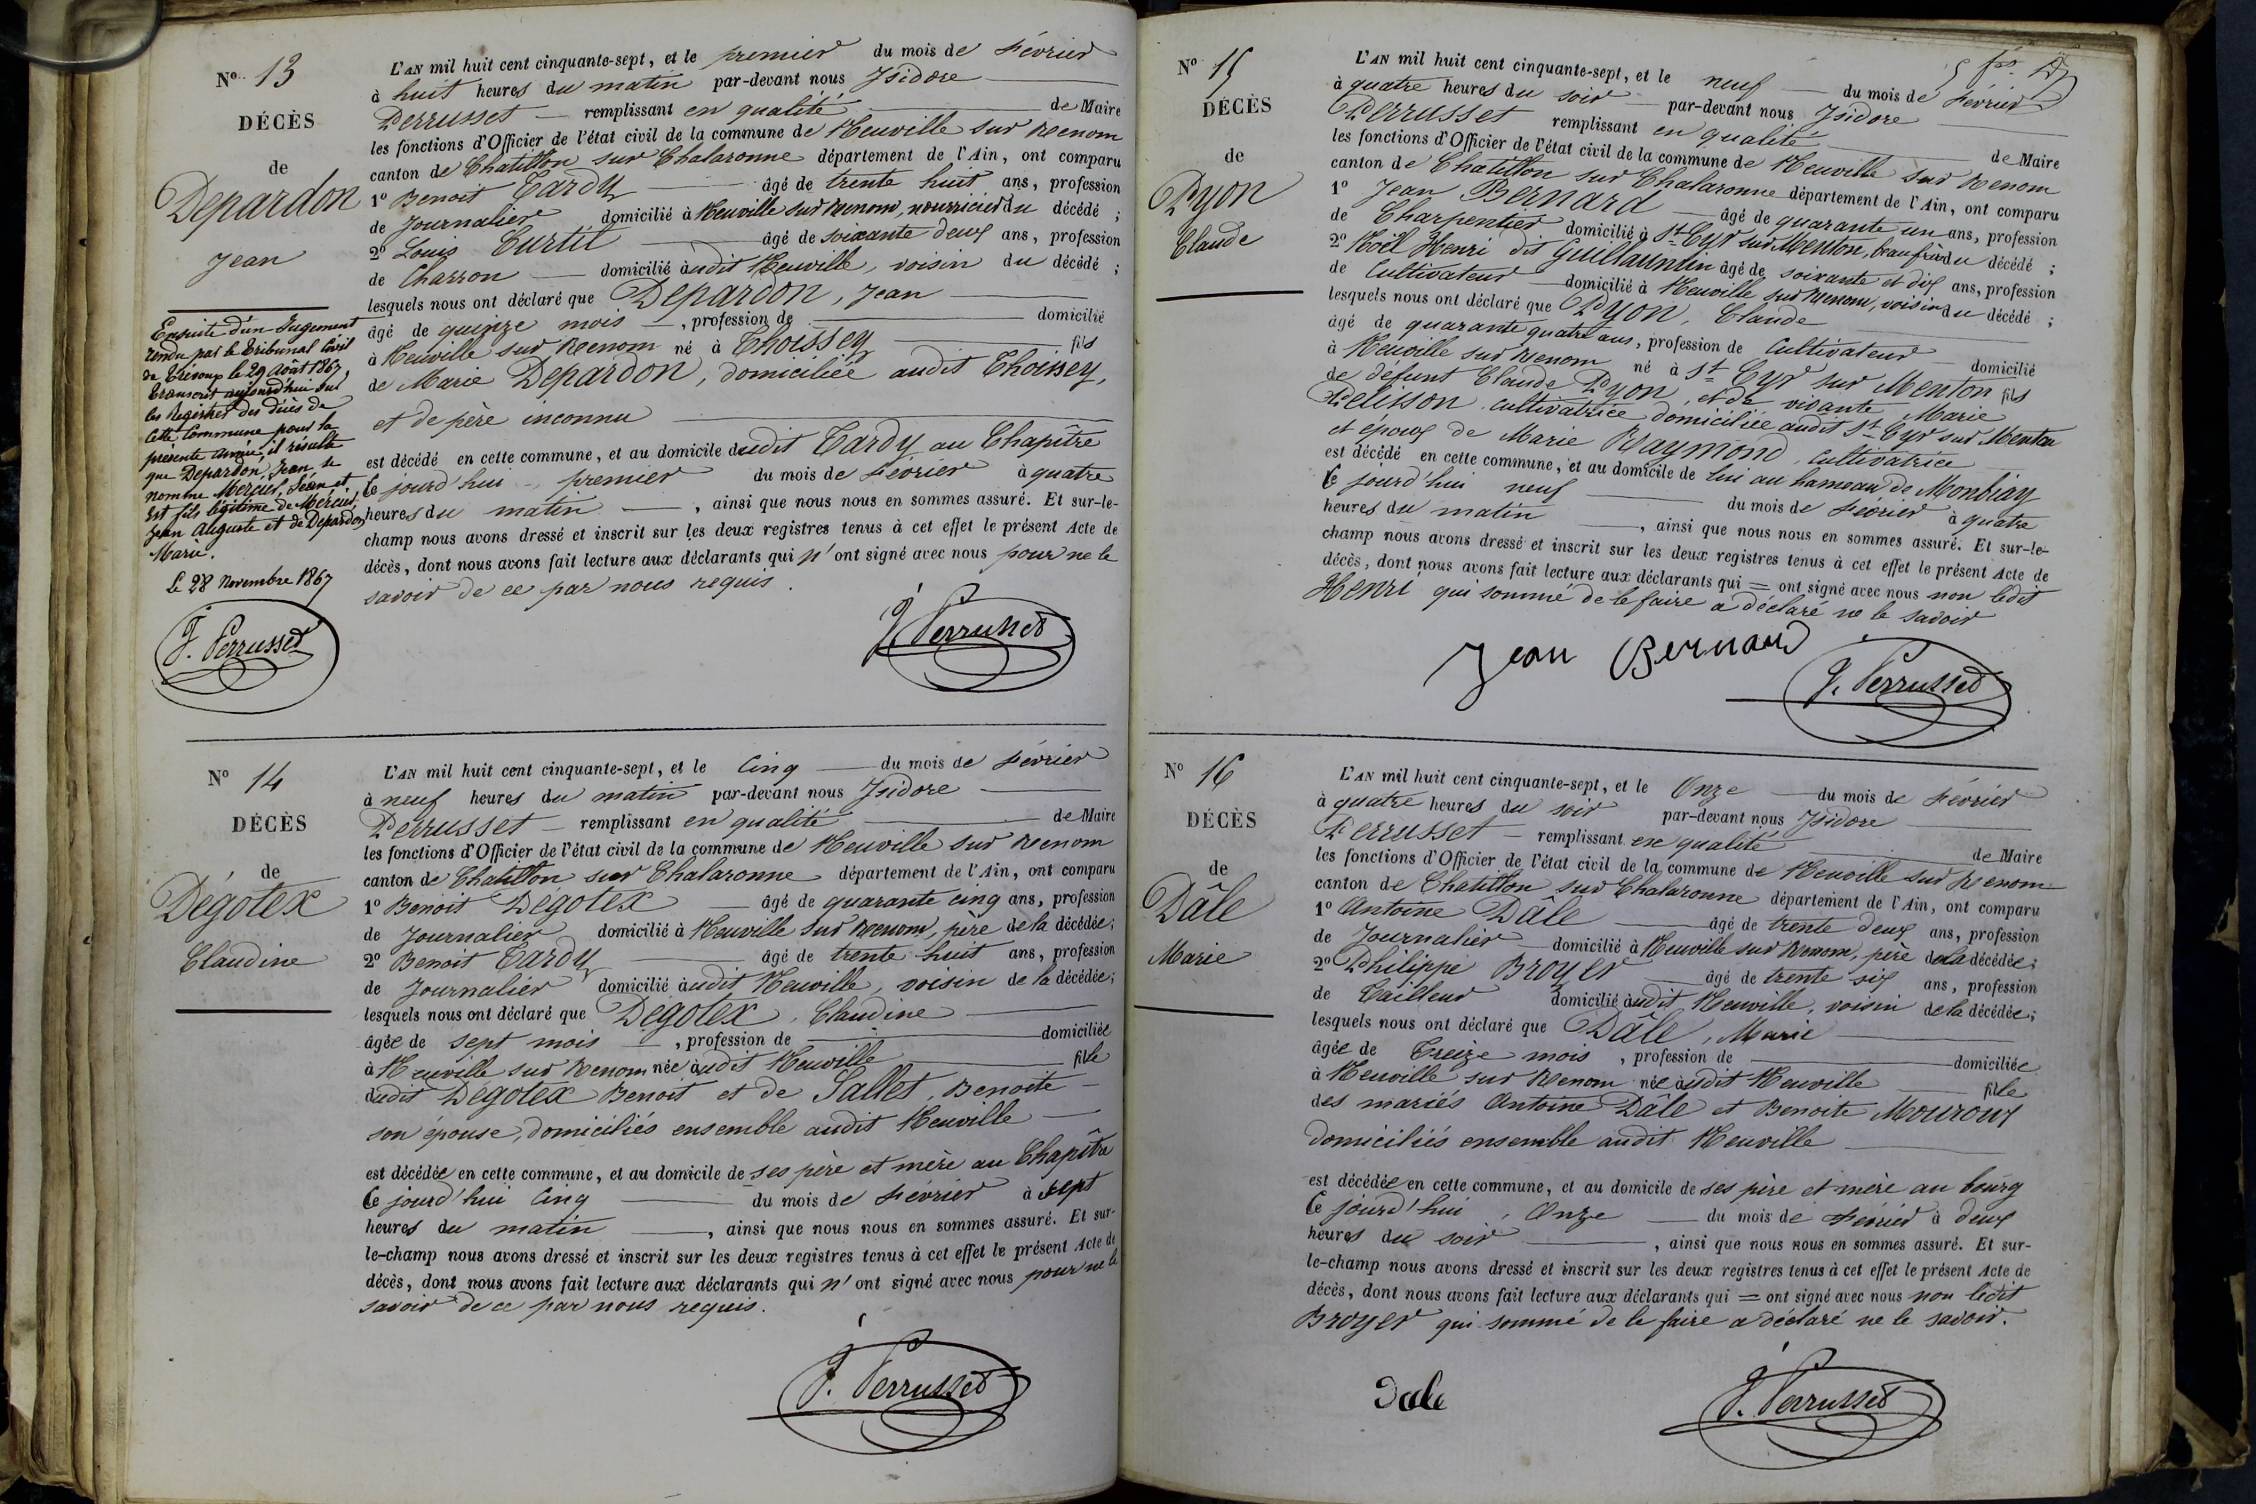 N° 13
DÉCÈS
de
Depardon
Jean
Ensuite d'un Jugement
rendu par le Tribunal Civil
de Trévoux le 29 Août 1867,
transcrit aujourd'hui sur
les Registres des décès de
cette Commune pour la
présente année, il résulte
que Depardon, Jean, se
nomme Mercier, Jean et
est fils légitime de Mercier,
Jean Auguste et de Depardon
Marie.
Le 28 Novembre 1867
J. Perrusset
L'AN mil huit cent cinquante-sept, et le premier du mois de Février
à huit heures du matin par-devant nous Isidore
Perrusset remplissant en qualité de Maire
les fonctions d'Officier de l'état civil de la commune de Neuville sur Renom
canton de Chatillon sur Chalaronne département de l'Ain, ont comparu
1° Benoit Tardy âgé de trente huit ans, profession
de Journalier domicilié à Neuville sur Renom, nourricier du décédé ;
2° Louis Curtil âgé de soixante deux ans, profession
de Charron domicilié audit Neuville, voisin du décédé ;
lesquels nous ont déclaré que Depardon, Jean
âgé de quinze mois, profession de domicilié
à Neuville sur Renom né à Thoissey fils
de Marie Depardon, domiciliée audit Thoissey,
et de père inconnu
est décédé en cette commune, et au domicile dudit Tardy au Chapître
Ce jourd'hui premier du mois de Février à quatre
heures du matin, ainsi que nous nous en sommes assuré. Et sur-le-
champ nous avons dressé et inscrit sur les deux registres tenus à cet effet le présent Acte de
décès, dont nous avons fait lecture aux déclarants qui n'ont signé avec nous pour ne le
savoir de ce par nous requis.
J. Perrusset
N° 14
DÉCÈS
de
Dégotex
Claudine
L'AN mil huit cent cinquante-sept, et le Cinq du mois de Février
à neuf heures du matin par-devant nous Isidore
Perrusset remplissant en qualité de Maire
les fonctions d'Officier de l'état civil de la commune de Neuville sur Renom
canton de Chatillon sur Chalaronne département de l'Ain, ont comparu
1° Benoit Dégotex âgé de quarante cinq ans, profession
de Journalier domicilié à Neuville sur Renom, père de la décédée;
2° Benoit Tardy âgé de trente huit ans, profession
de Journalier domicilié audit Neuville, voisin de la décédée;
lesquels nous ont déclaré que Dégotex, Claudine
âgée de sept mois, profession de domiciliée
à Neuville sur Renom née audit Neuville fille
dudit Dégotex Benoit et de Sallet, Benoite
son épouse, domiciliés ensemble audit Neuville
est décédée en cette commune, et au domicile de ses père et mère au Chapître
Ce jourd'hui Cinq du mois de Février à sept
heures du matin, ainsi que nous nous en sommes assuré. Et sur-
le-champ nous avons dressé et inscrit sur les deux registres tenus à cet effet le présent Acte de
décès, dont nous avons fait lecture aux déclarants qui n'ont signé avec nous pour ne le
savoir de ce par nous requis.
J. Perrusset
N° 15
DÉCÈS
de
Pyon
Claude
L'AN mil huit cent cinquante-sept, et le neuf du mois de Février
à quatre heures du soir par-devant nous Isidore
Perrusset remplissant en qualité de Maire
les fonctions d'Officier de l'état civil de la commune de Neuville sur Renom
canton de Chatillon sur Chalaronne département de l'Ain, ont comparu
1° Jean Bernard âgé de quarante un ans, profession
de Charpentier domicilié à St Cyr sur Menton, beau frère du décédé ;
2° Noël Henri dit Guillaumin âgé de soixante et dix ans, profession
de Cultivateur domicilié à Neuville sur Renom, voisin du décédé ;
lesquels nous ont déclaré que Pyon, Claude
âgé de quarante quatre ans, profession de Cultivateur domicilié
à Neuville sur Renom né à St Cyr sur Menton fils
de défunt Claude Pyon, et de vivante Marie
Pelisson, cultivatrice domiciliée audit St Cyr sur Menton
et époux de Marie Raymond, Cultivatrice
est décédé en cette commune, et au domicile de lui au hameau de Monbiay
Ce jourd'hui neuf du mois de Février à quatre
heures du matin, ainsi que nous nous en sommes assuré. Et sur-le-
champ nous avons dressé et inscrit sur les deux registres tenus à cet effet le présent Acte de
décès, dont nous avons fait lecture aux déclarants qui = ont signé avec nous non ledit
Henri qui sommé de le faire a déclaré ne le savoir
Jean Bernard
J. Perrusset
N° 16
DÉCÈS
de
Dâle
Marie
L'AN mil huit cent cinquante-sept, et le Onze du mois de Février
à quatre heures du soir par-devant nous Isidore
Perrusset remplissant en qualité de Maire
les fonctions d'Officier de l'état civil de la commune de Neuville sur Renom
canton de Chatillon sur Chalaronne département de l'Ain, ont comparu
1° Antoine Dâle âgé de trente deux ans, profession
de Journalier domicilié à Neuville sur Renom, père de la décédée;
2° Philippe Broyer âgé de trente six ans, profession
de Tailleur domicilié audit Neuville, voisin de la décédée;
lesquels nous ont déclaré que Dâle, Marie
âgée de Treize mois, profession de domiciliée
à Neuville sur Renom née audit Neuville fille
des mariés Antoine Dâle et Benoite Mouroux
domiciliés ensemble audit Neuville
est décédée en cette commune, et au domicile de ses père et mère au bourg
Ce jourd'hui, Onze du mois de Février à deux
heures du soir, ainsi que nous nous en sommes assuré. Et sur-
le-champ nous avons dressé et inscrit sur les deux registres tenus à cet effet le présent Acte de
décès, dont nous avons fait lecture aux déclarants qui = ont signé avec nous non ledit
Broyer qui sommé de le faire a déclaré ne le savoir.
Dale
J. Perrusset